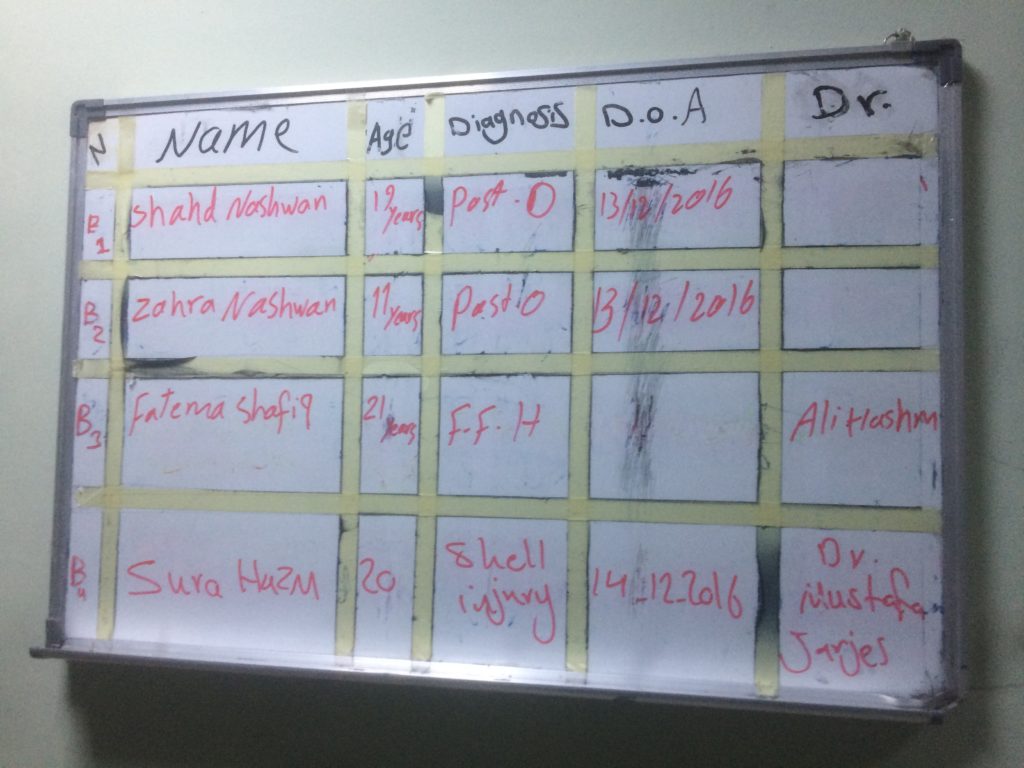 N Name Age Diagnosis D.O.A Dr.
B1 Shahd Nashwan 19 years Post.O 13/12/2016
B2 Zahra Nashwan 11 years Post.O 13/12/2016
B3 Fatema Shafiq 21 years F.F.H Ali Hashm
B4 Sura Hazm 20 Shell injury 14-12-2016 Dr. Mustafa Jarjes